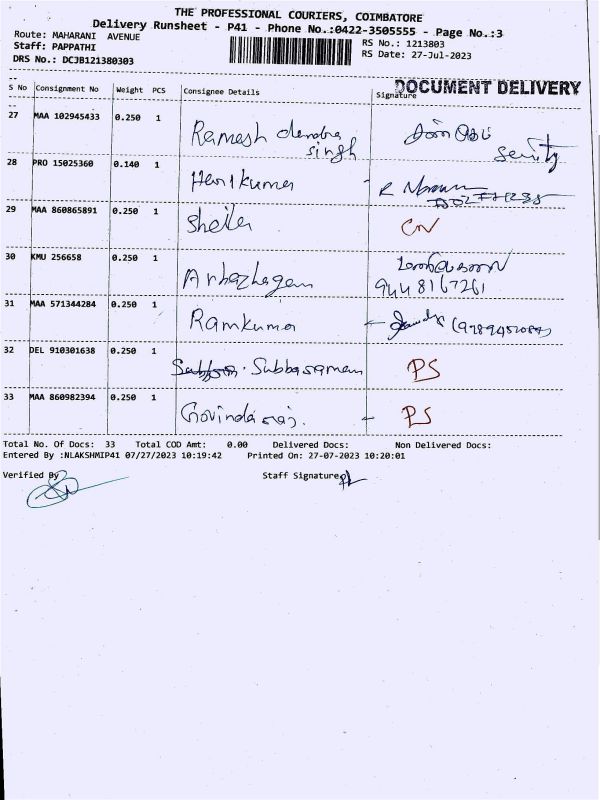 THE PROFESSIONAL COURIERS, COIMBATORE
Delivery Runsheet - P41 - Phone No.:0422-3505555 - Page No.:3
Route: MAHARANI AVENUE
Staff: PAPPATHI
DRS No.: DCJB121380303
RS No.: 1213803
RS Date: 27-Jul-2023
DOCUMENT DELIVERY
S No Consignment No Weight PCS Consignee Details Signature
27 MAA 102945433 0.250 1 Ramesh chendra
singh
28 PRO 15025360 0.140 1 Harikumar
29 MAA 860865891 0.250 1 Sheila CN
30 KMU 256658 0.250 1 Arhazhagan
9448167261
31 MAA 571344284 0.250 1 Ramkumar
32 DEL 910301638 0.250 1 Subbaraman PS
33 MAA 860982394 0.250 1 Govindaraj. - PS
Total No. Of Docs: 33 Total COD Amt: 0.00 Delivered Docs: Non Delivered Docs:
Entered By :NLAKSHMIP41 07/27/2023 10:19:42 Printed On: 27-07-2023 10:20:01
Verified By Staff Signature